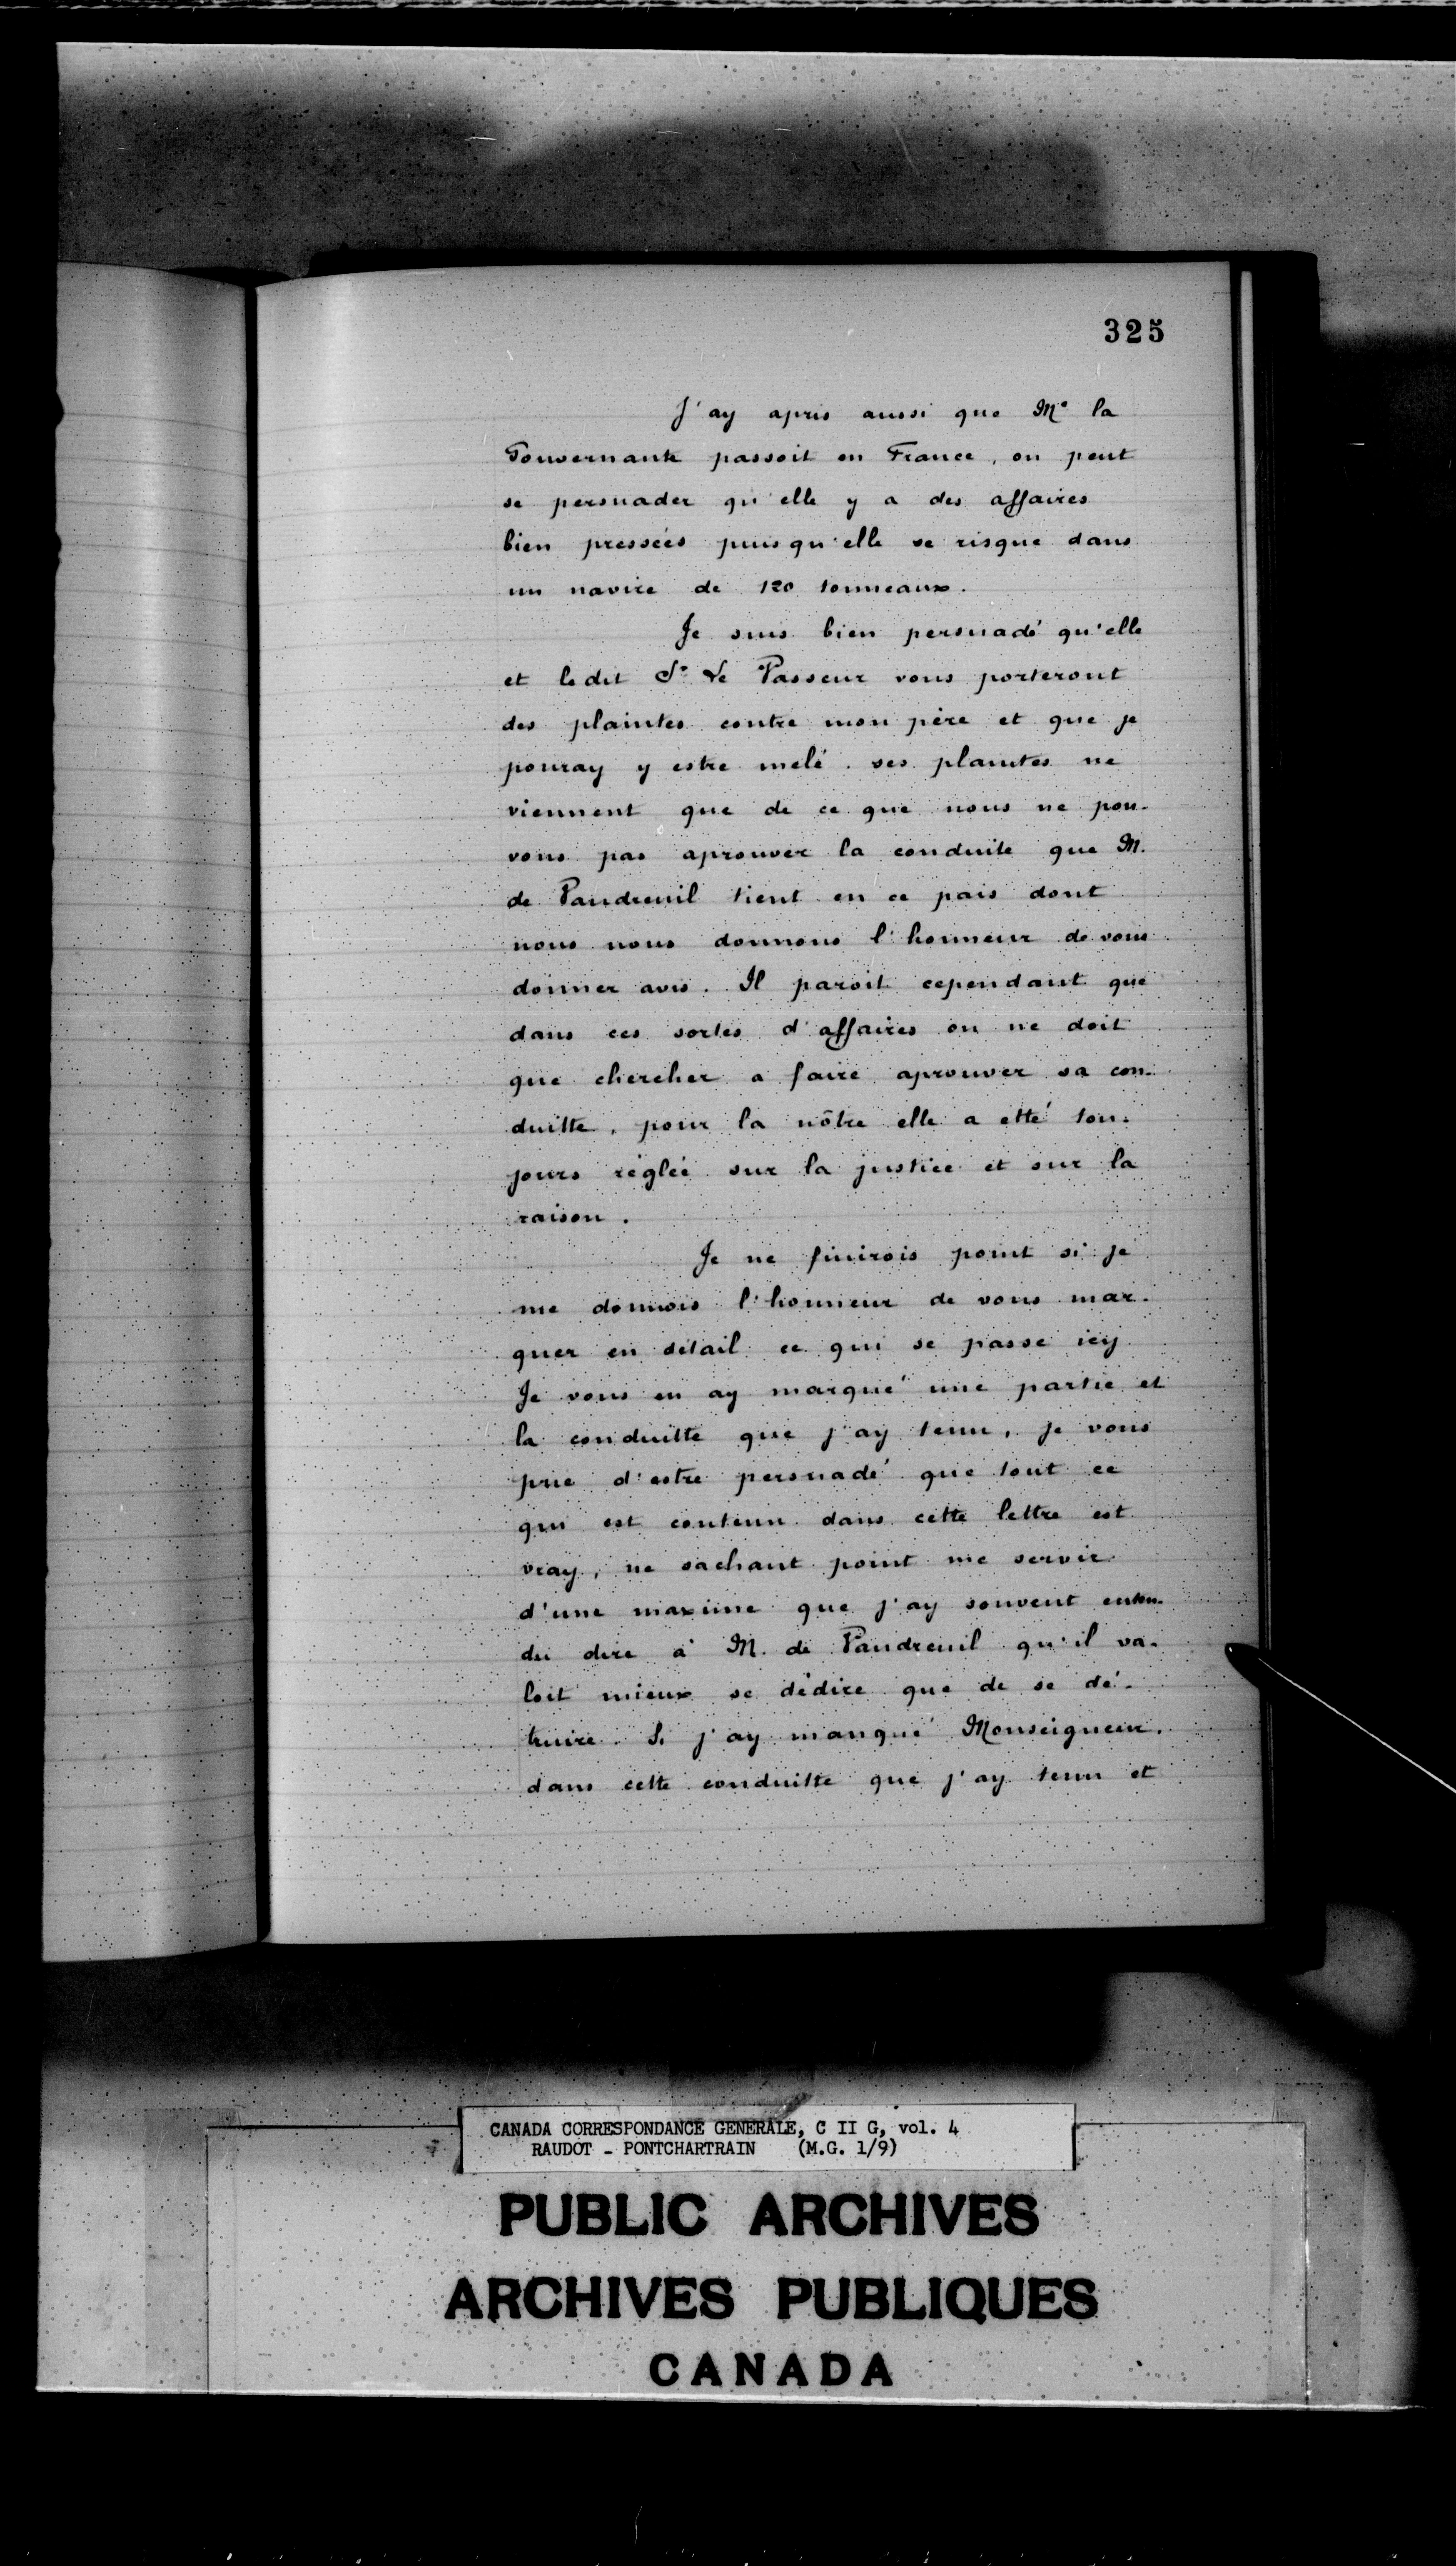 325
J'ay apris aussi que Me la
Gouvernante passoit en France, on peut
se persuader qu'elle y a des affaires
bien pressées puisqu'elle se risque dans
un navire de 120 tonneaux.
Je suis bien persuadé qu'elle
et ledit Sr Le Vasseur vous porteront
des plaintes contre mon père et que je
pouray y estre mélé. ses plaintes ne
viennent que de ce que nous ne pou-
vons pas aprouver la conduite que M.
de Vaudreuil tient en ce pais dont
nous nous donnons l'honneur de vous
donner avis. Il paroit cependant que
dans ces sortes d'affaires on ne doit
que chercher a faire aprouver sa con-
duitte, pour la nôtre elle a etté tou-
jours réglée sur la justice et sur la
raison.
Je ne finirois point si je
me donnois l'honneur de vous mar-
quer en détail ce qui se passe icy
Je vous en ay marqué une partie et
la conduitte que j'ay tenu, je vous
prie d'estre persuadé que tout ce
qui est contenu dans cette lettre est
vray, ne sachant point me servir
d'une maxime que j'ay souvent enten-
du dire à M. de Vaudreuil qu'il va-
loit mieux se dédire que de se dé-
truire. Si j'ay manqué Monseigneur,
dans cette conduitte que j'ay tenu et
CANADA CORRESPONDANCE GENERALE, C II G, vol. 4
RAUDOT - PONTCHARTRAIN (M.G. 1/9)
PUBLIC ARCHIVES
ARCHIVES PUBLIQUES
CANADA